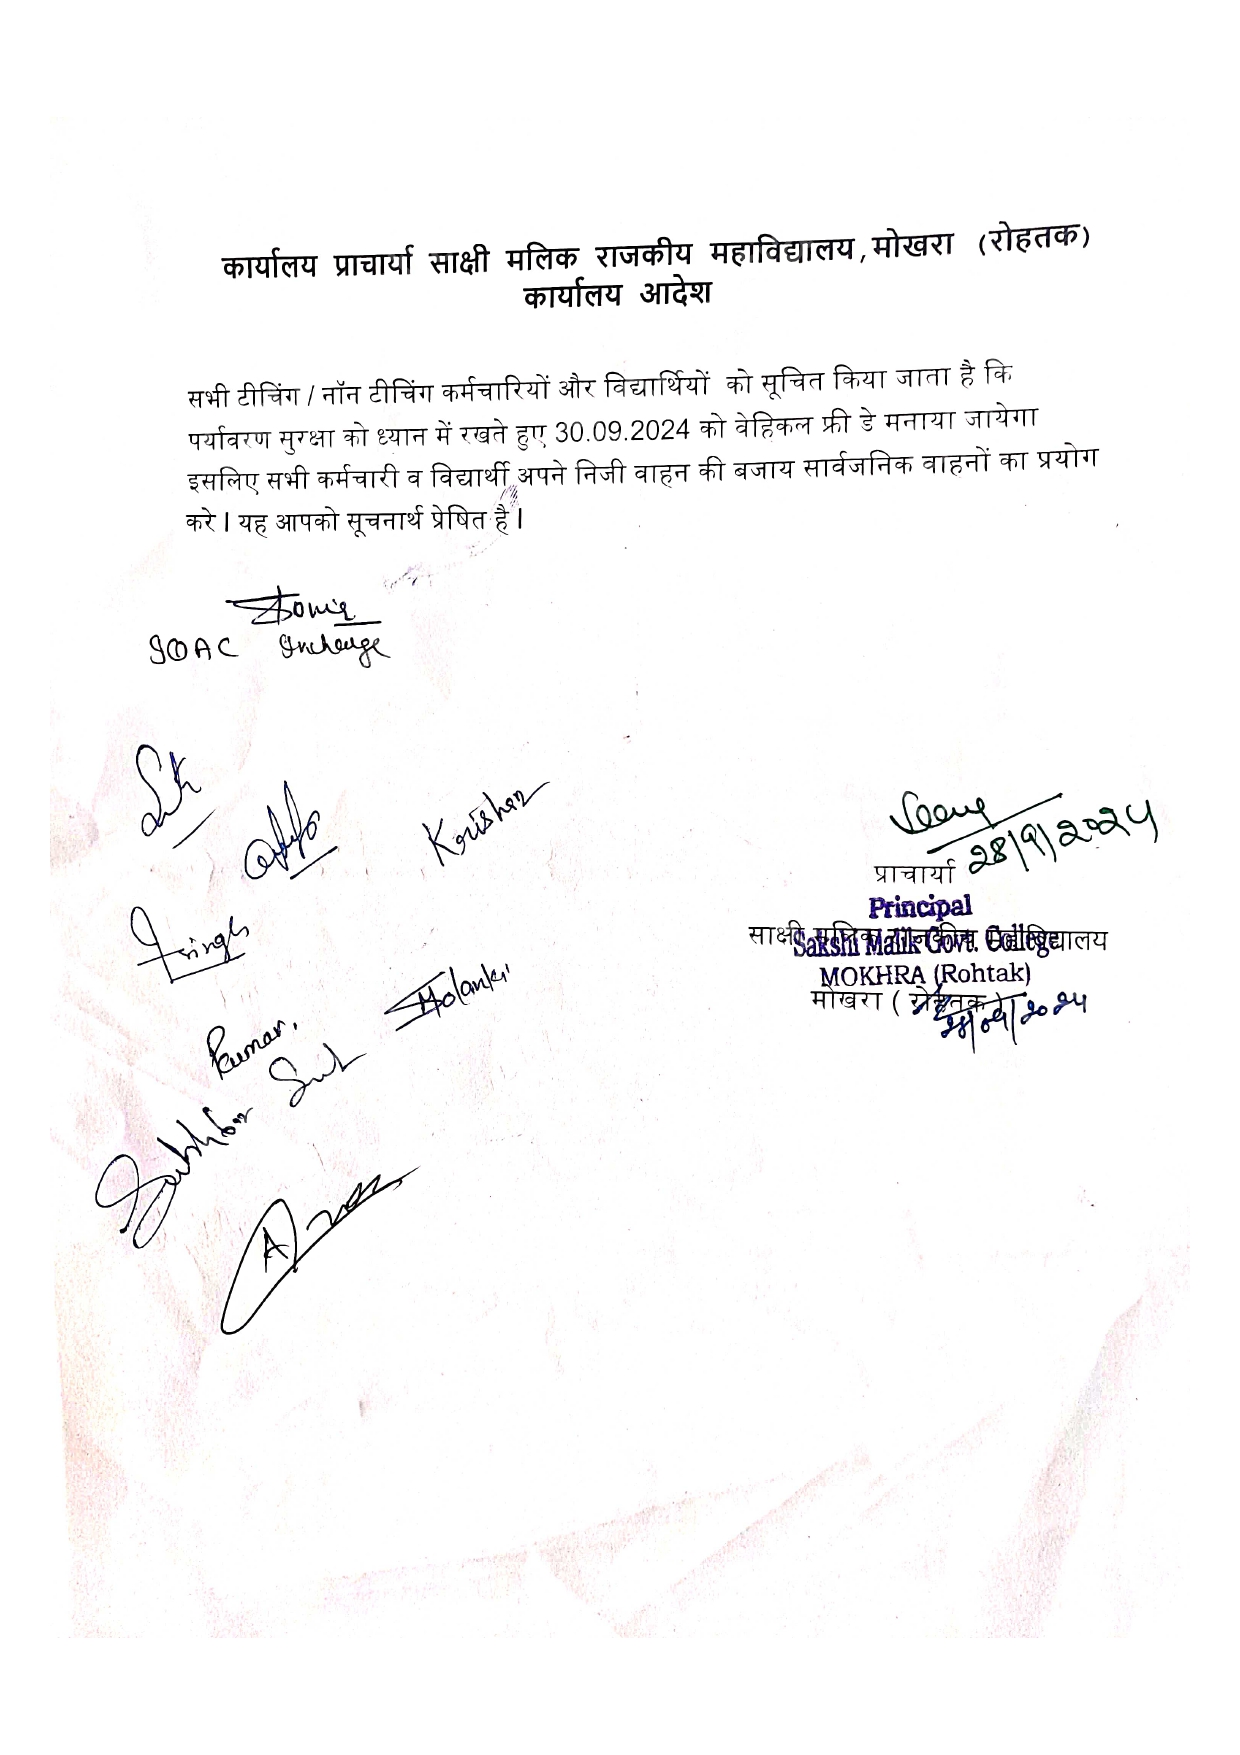 कार्यालय प्राचार्या साक्षी मलिक राजकीय महाविद्यालय, मोखरा (रोहतक)
कार्यालय आदेश
सभी टीचिंग / नॉन टीचिंग कर्मचारियों और विद्यार्थियों को सूचित किया जाता है कि
पर्यावरण सुरक्षा को ध्यान में रखते हुए 30.09.2024 को वेहिकल फ्री डे मनाया जायेगा
इसलिए सभी कर्मचारी व विद्यार्थी अपने निजी वाहन की बजाय सार्वजनिक वाहनों का प्रयोग
करे l यह आपको सूचनार्थ प्रेषित है l
IQAC Incharge
Krishan
28/9/2024
प्राचार्या
Principal
साक्षी मलिक राजकीय महाविद्यालय
Sakshi Malik Govt. College
MOKHRA (Rohtak)
मोखरा ( रोहतक )
28/09/2024
Kumar.